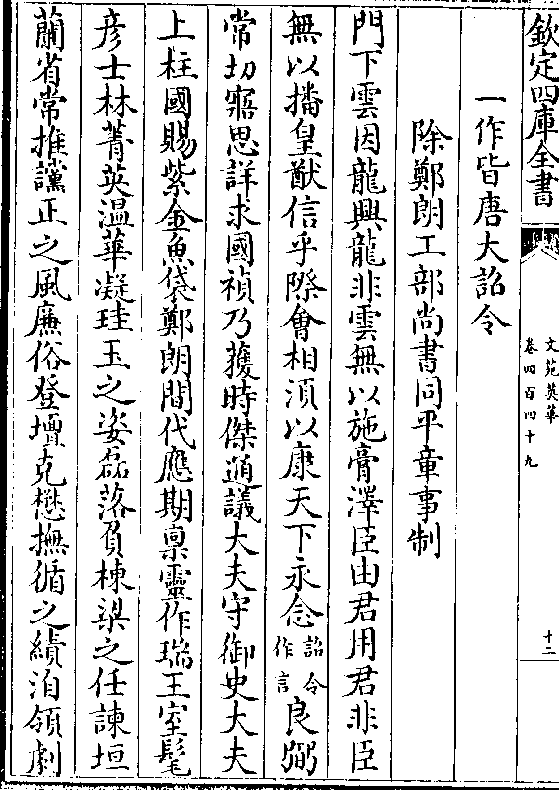 欽定四庫全書
文苑英華
卷四百四十九
十二
一作皆唐大詔令
除鄭朗工部尚書同平章事制
門下雲因龍興龍非雲無以施膏澤臣由君用君非臣
無以播皇猷信乎際會相須以康天下永念詔令作言良弼
常切寤思詳求國禎乃獲時傑通議大夫守御史大夫
上柱國賜紫金魚袋鄭朗間代應期禀靈作瑞王室髦
彦士林菁英溫華凝珪玉之姿磊落負棟梁之任諫垣
蘭省常推讜正之風廉俗登壇克懋撫循之績洎領劇